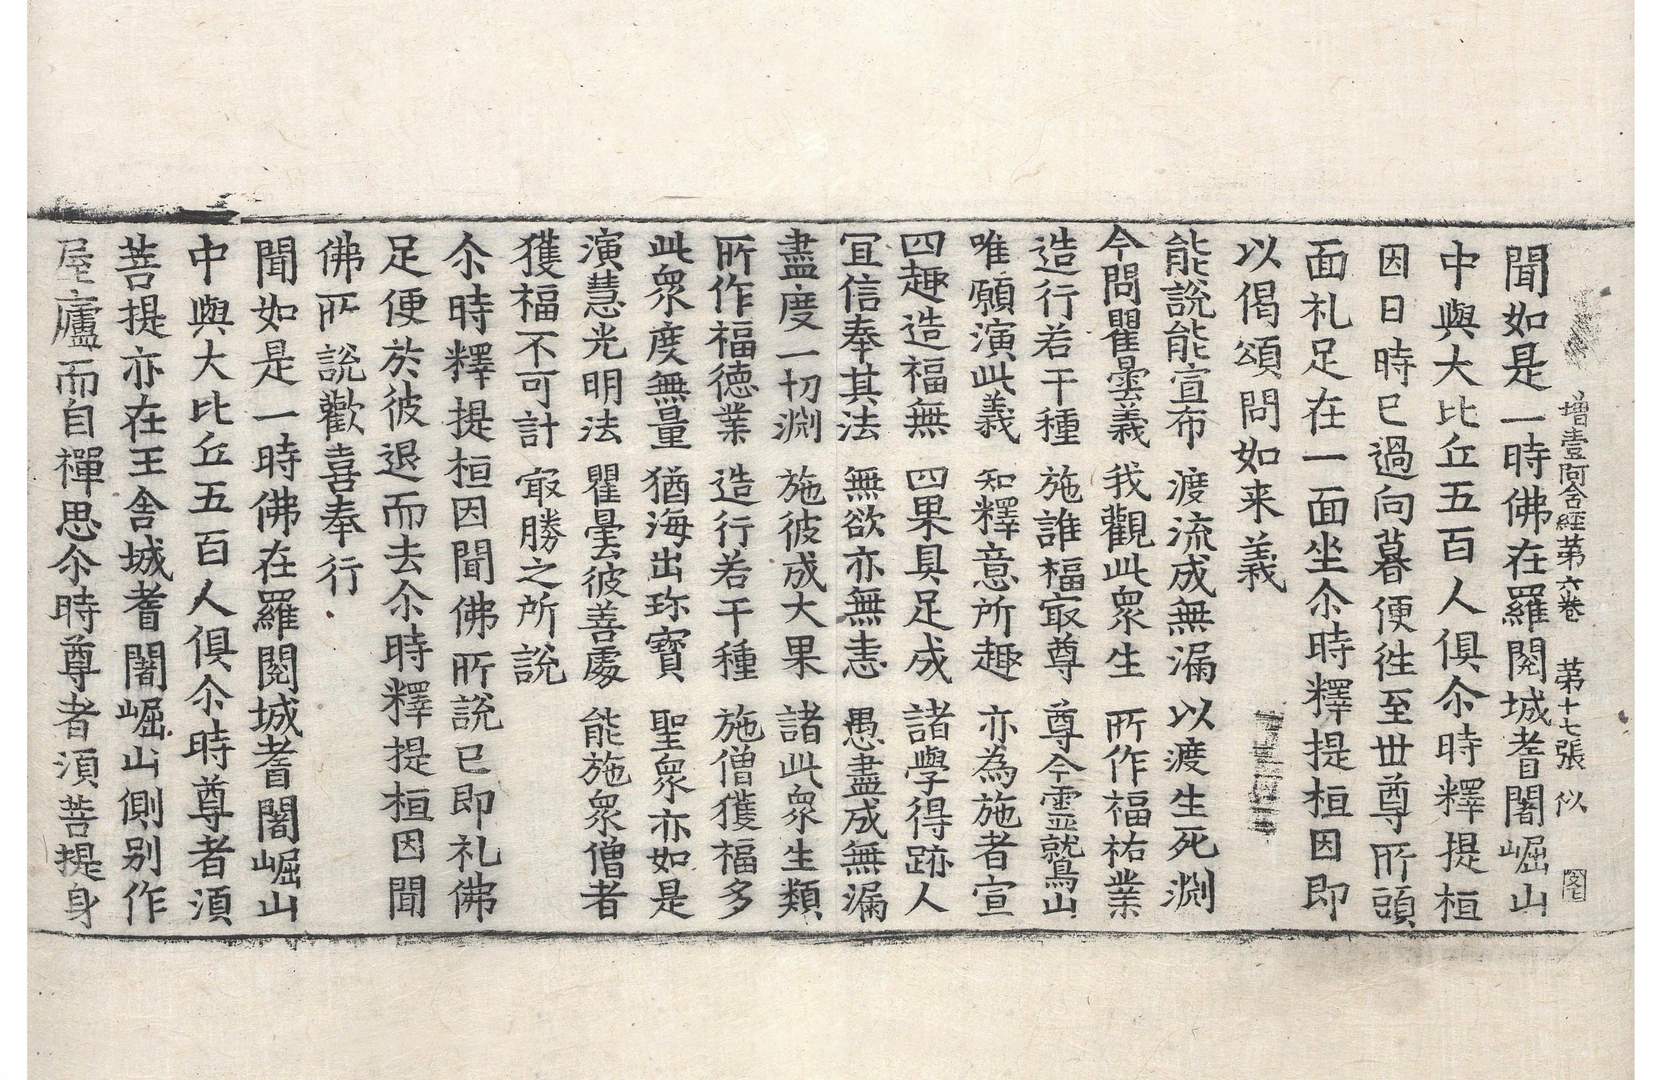 增壹阿含經第六卷 第十七張 似
聞如是一時佛在羅閱城耆闍崛山
中與大比丘五百人俱尒時釋提桓
因日時已過向暮便往至世尊所頭
面礼足在一面坐尒時釋提桓因即
以偈頌問如来義
能說能宣布 渡流成無漏 以渡生死淵
今問瞿曇義 我觀此衆生 所作福祐業
造行若干種 施誰福㝡尊 尊今靈鷲山
唯願演此義 知釋意所趣 亦為施者宣
四趣造福無 四果具足成 諸學得跡人
宜信奉其法 無欲亦無恚 愚盡成無漏
盡度一切淵 施彼成大果 諸此衆生類
所作福德業 造行若干種 施僧獲福多
此衆度無量 猶海出珎寶 聖衆亦如是
演慧光明法 瞿曇彼善處 能施衆僧者
獲福不可計 㝡勝之所說
尒時釋提桓因聞佛所說已即礼佛
足便於彼退而去尒時釋提桓因聞
佛所說歡喜奉行
聞如是一時佛在羅閱城耆闍崛山
中與大比丘五百人俱尒時尊者湏
菩提亦在王舍城耆闍崛山側別作
屋廬而自禪思尒時尊者湏菩提身